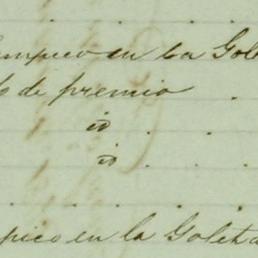 mpico en la Gole
de premio
id
id
pico en la Goleta